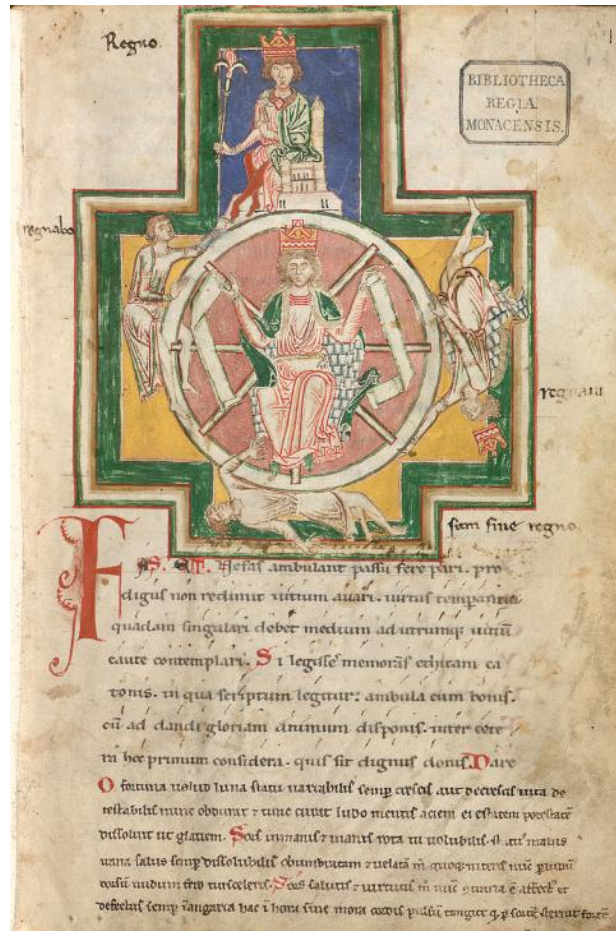 Regno.
BIBLIOTHECA
REGIA
MONACENSIS.
regnabo
regnaui
sum sine regno.
FAS. ET. Nefas ambulant passu fere pari. pro
digus non redimit uitium auari. uirtus temperantia
quadam singulari debet medium ad utrumq; uitiū
caute contemplari. Si legisse memoras ethicam ca
tonis. in qua scriptum legitur: ambula cum bonis.
cū ad dandi gloriam animum disponis. inter cete
ra hoc primum considera. quis sit dignus donis. Dare
O fortuna uelud luna statu uariabilis semp crescis aut decrescis uita de
testabilis nunc obdurat ⁊ tunc curat ludo mentis aciem egestatem potestatē
dissoluit ut glaciem. Sors inmanis ⁊ inanis rota tu uolubilis status malus
uana salus semp dissolubilis obumbratam ⁊ uelatā m quoq; niteris nūc p ludum
dorsū nudum fero tui sceleris. Sors salutis ⁊ uirtutis m nūc contraria ē affectꝰ et
defectus semp ī angaria hac ī hora sine mora cordis pulsū tangite q p sortē sternit fortē